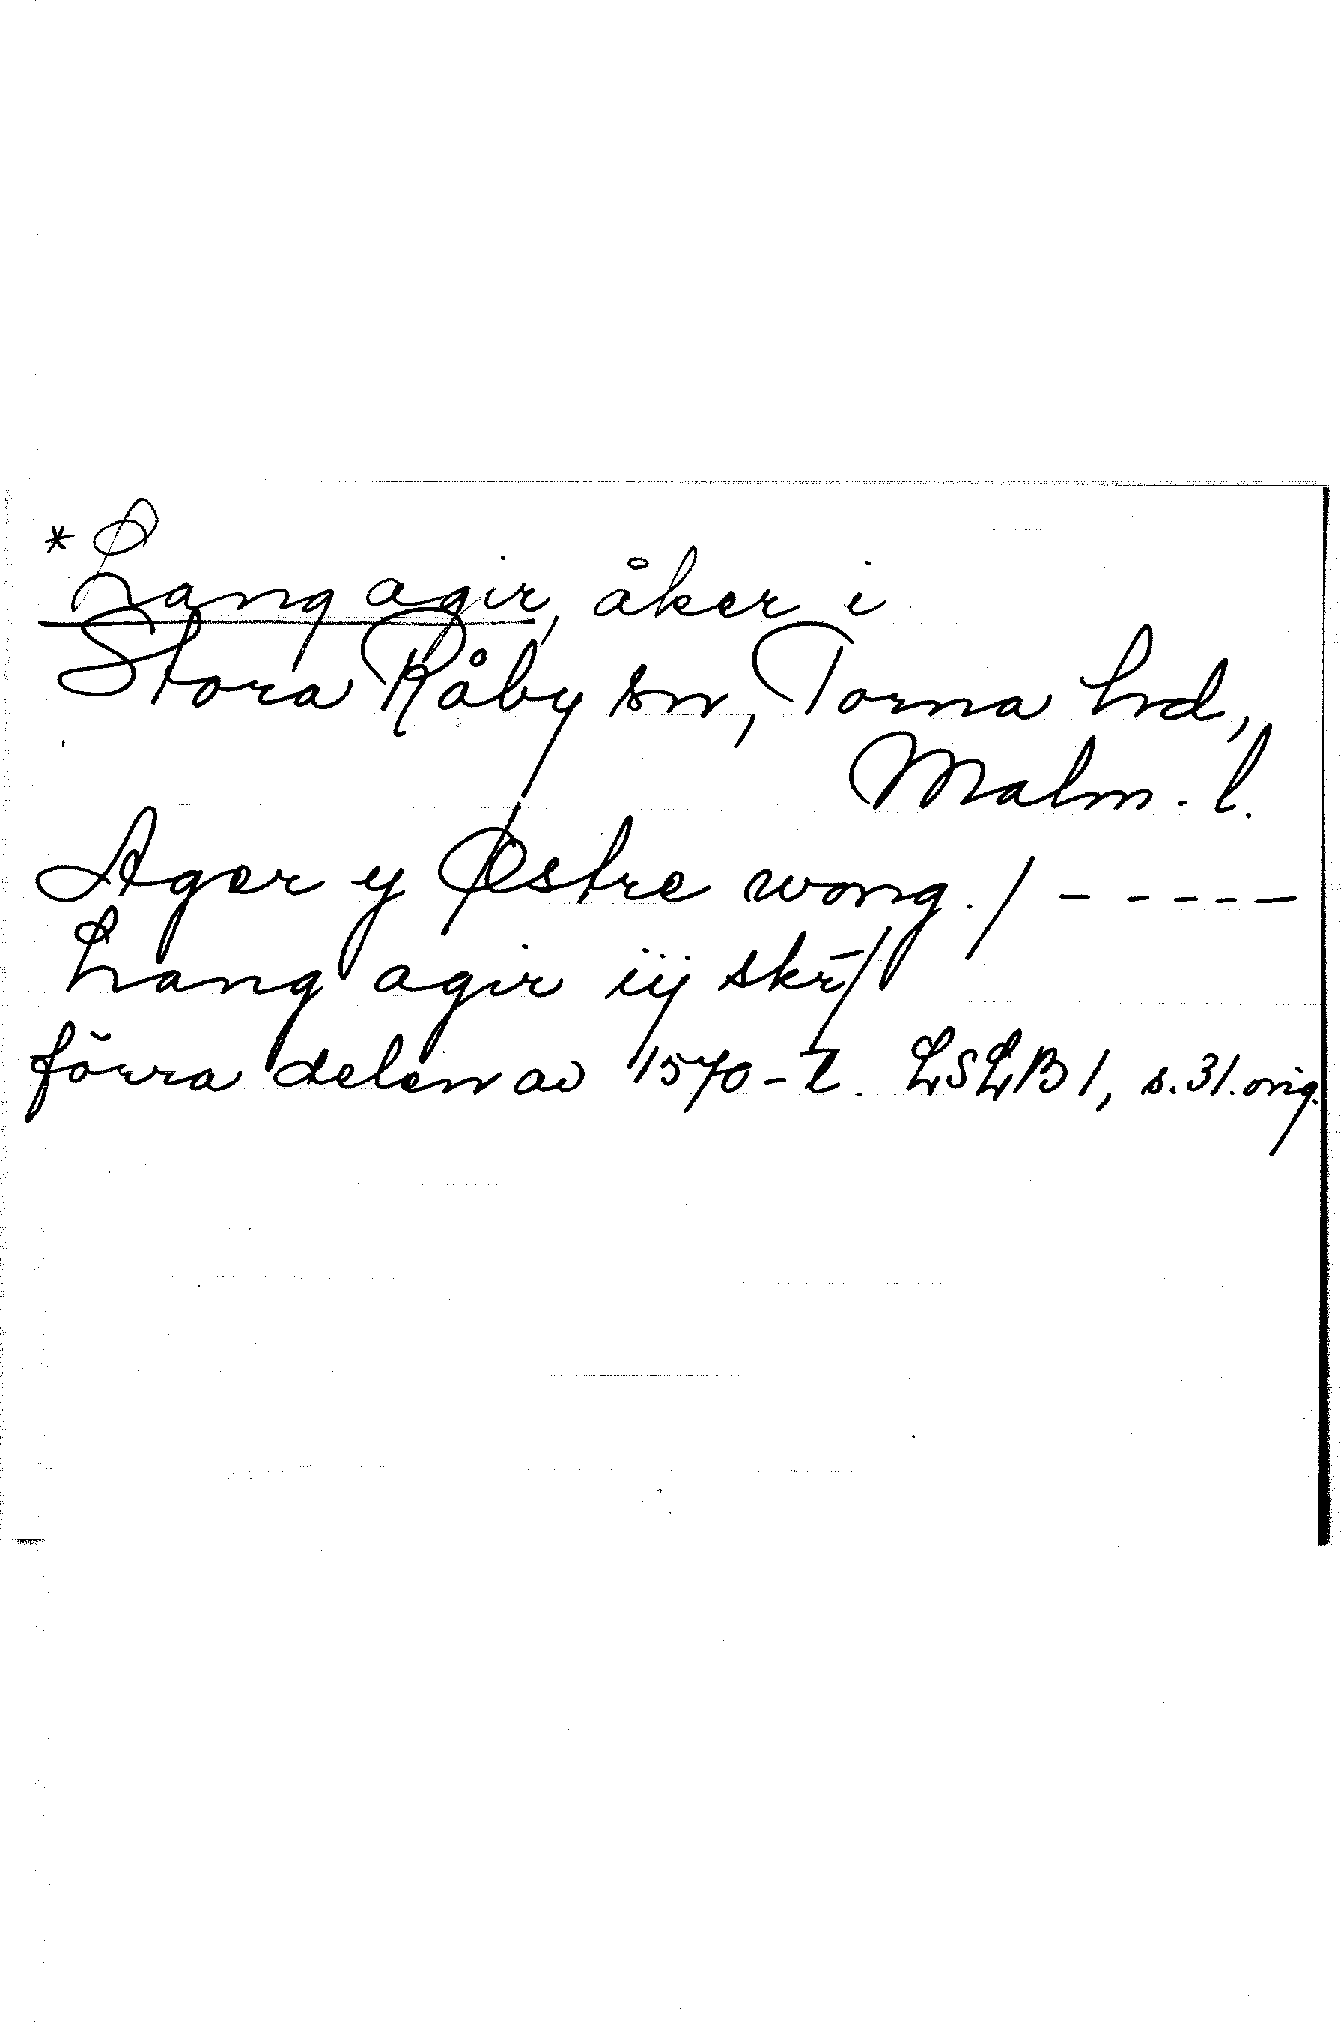 * Lang agir, åker i
Stora Råby sn, Torna hd,
Malm. l.
Ager y Østre wong. / - - - - - -
Lang agir iij skr̄/
förra delen av 1570-t. LSLB 1, s. 31. orig.